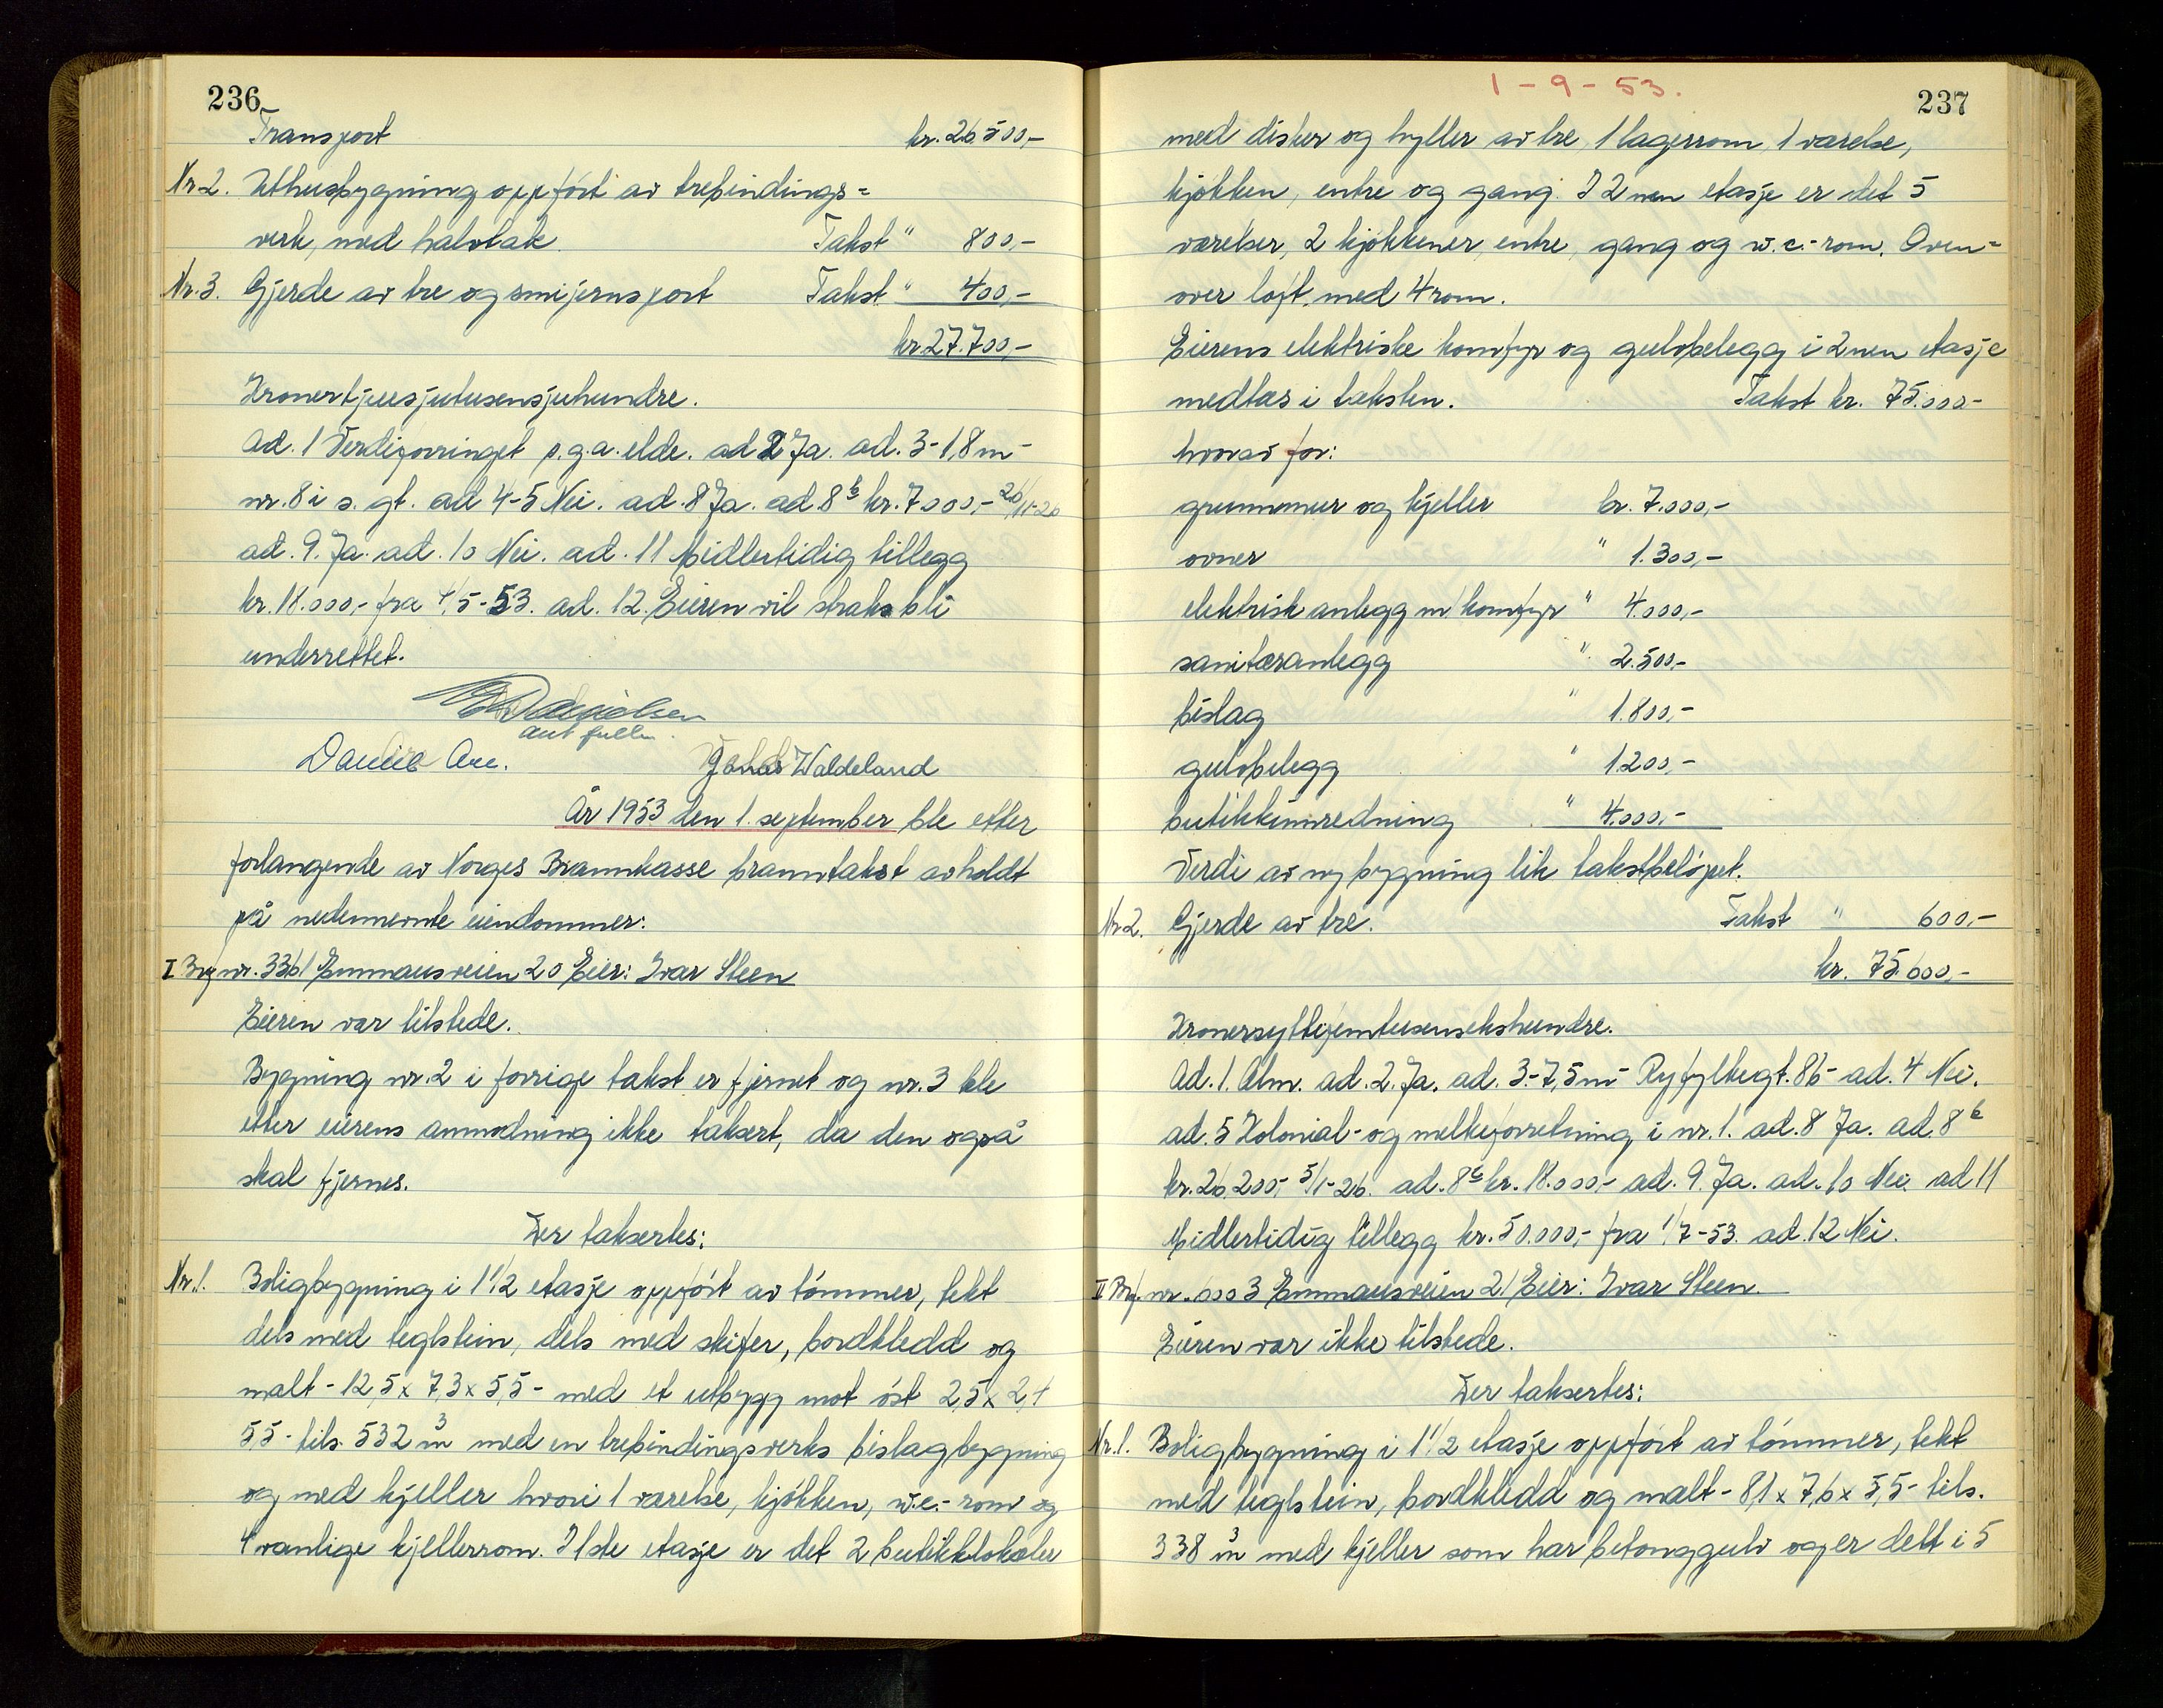 236
Transport kr. 26.500,-
Nr. 2. Uthusbygning oppført av trebindings=
verk, med halvtak. Takst " 800,-
Nr. 3. Gjerde av tre og smijernsport Takst " 400,-
kr 27.700,-
Kronertjuesjutusensjuhundre.
Ad. 1 Verdiforringet p.g.a. elde. ad 2 Ja. ad. 3 - 1,8 m -
nr. 8 i s. gt. ad 4-5 Nei. ad. 8 Ja. ad. 8 b kr. 7000,- 26/11-26
ad. 9. Ja. ad. 10 Nei. ad. 11 Midlertidig tillegg
kr. 18.000,- fra 4/5-53. ad. 12. Eieren vil straks bli
underrettet.
Danielsen
aut fullm.
Are. Waldeland
År 1953 den 1. september ble etter
forlangende av Norges Brannkasse branntakst avholdt
på nedennevnte eiendommer:
I Brf nr. 3361 Emmausveien 20 Eier: Ivar Steen
Eieren var tilstede.
Bygning nr. 2 i forrige takst er fjernet og nr. 3 ble
etter eierens anmodning ikke taksert, da den også
skal fjernes.
Der taksertes:
Nr. 1. Boligbygning i 1 1/2 etasje oppført av tømmer, tekt
dels med teglstein, dels med skifer, bordkledd og
malt - 12,5 x 7,3 x 5,5 - med et utbygg mot øst 2,5 x 2,4
5,5 - tils. 532 m3 med en trebindingsverks bislagbygning
og med kjeller hvori 1 værelse, kjøkken, w.c.- rom og
4 vanlige kjellerrom. I 1ste etasje er det 2 butikklokaler
1 - 9 - 53.
237
med disker og hyller av tre, 1 lagerrom, 1 værelse,
kjøkken, entre og gang. I 2nen etasje er det 5
værelser, 2 kjøkkener, entre, gang og w.c.- rom. Oven=
over loft med 4 rom.
Eierens elektriske komfyr og gulvbelegg i 2nen etasje
medtas i taksten. Takst kr. 75.000-
hvorav for:
grunnmur og kjeller kr. 7.000,-
ovner " 1.300,-
elektrisk anlegg m/komfyr " 4.000,-
sanitæranlegg " 2.500,-
bislag " 1.800,-
gulvbelegg " 1.200,-
butikkinnredning " 4.000,-
Verdi av ny bygning lik takstbeløpet.
Nr. 2. Gjerde av tre. Takst " 600,-
kr. 75.600,-
Kronersyttifemtusensekshundre.
Ad. 1. Alm. ad. 2. Ja. ad. 3. - 7,5 m - Ryfylkegt. 86 - ad. 4 Nei.
ad. 5 Kolonial- og melkeforretning i nr. 1. ad. 8 Ja. ad. 8 b
kr. 26.200,- 5/1-26. ad. 8 c kr. 18.000,- ad. 9. Ja. ad. 10 Nei. ad 11
Midlertidig tillegg kr. 50.000,- fra 1/7-53. ad. 12 Nei.
II Brf. nr. 6003 Emmausveien 21 Eier: Ivar Steen.
Eieren var ikke tilstede.
Der taksertes:
Nr. 1. Boligbygning i 1 1/2 etasje oppført av tømmer, tekt
med teglstein, bordkledd og malt - 8,1 x 7,6 x 5,5 - tils.
338 m3 med kjeller som har betonggulv og er delt i 5